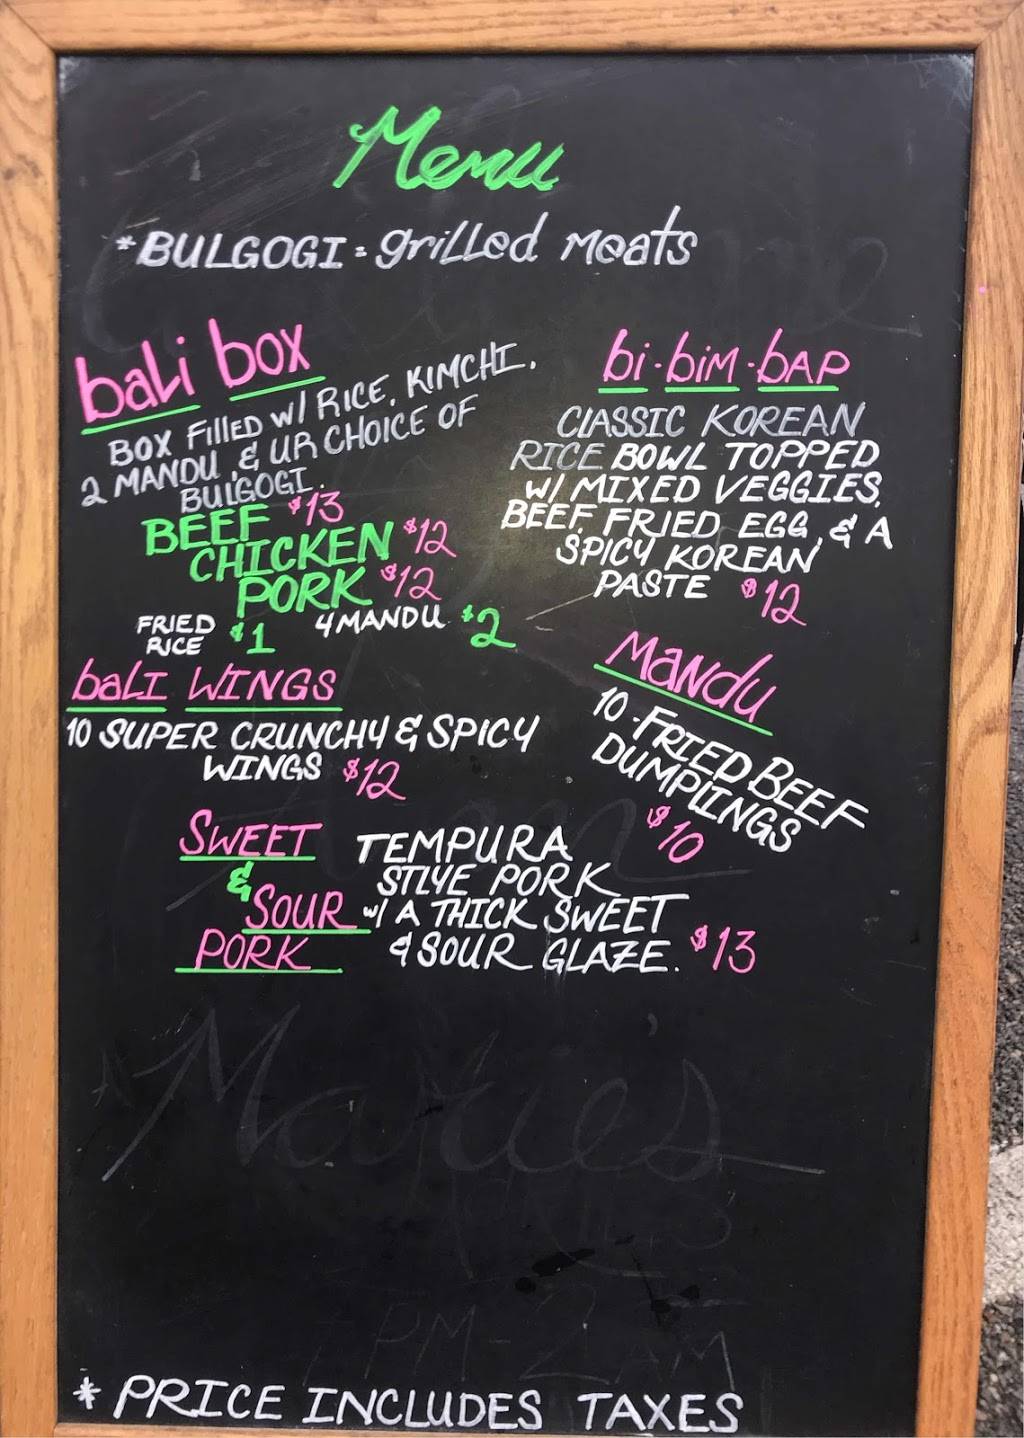 Menu
*BULGOGI = grilled meats
bali box
BOX Filled w/ RICE, KIMCHI,
2 MANDU, & UR CHOICE OF
BULGOGI.
BEEF $13
CHICKEN $12
PORK $12
FRIED RICE $1
4 MANDU $2
bi·bim·bap
CLASSIC KOREAN
RICE BOWL TOPPED
W/ MIXED VEGGIES,
BEEF, FRIED EGG, & A
SPICY KOREAN
PASTE $12
baLI WINGS
10 SUPER CRUNCHY & SPICY
WINGS $12
Mandu
10-FRIED BEEF
DUMPLINGS
$10
SWEET
&
SOUR
PORK
TEMPURA
STLYE PORK
w/ A THICK SWEET
& SOUR GLAZE. $13
Marie's
PM-2AM
* PRICE INCLUDES TAXES